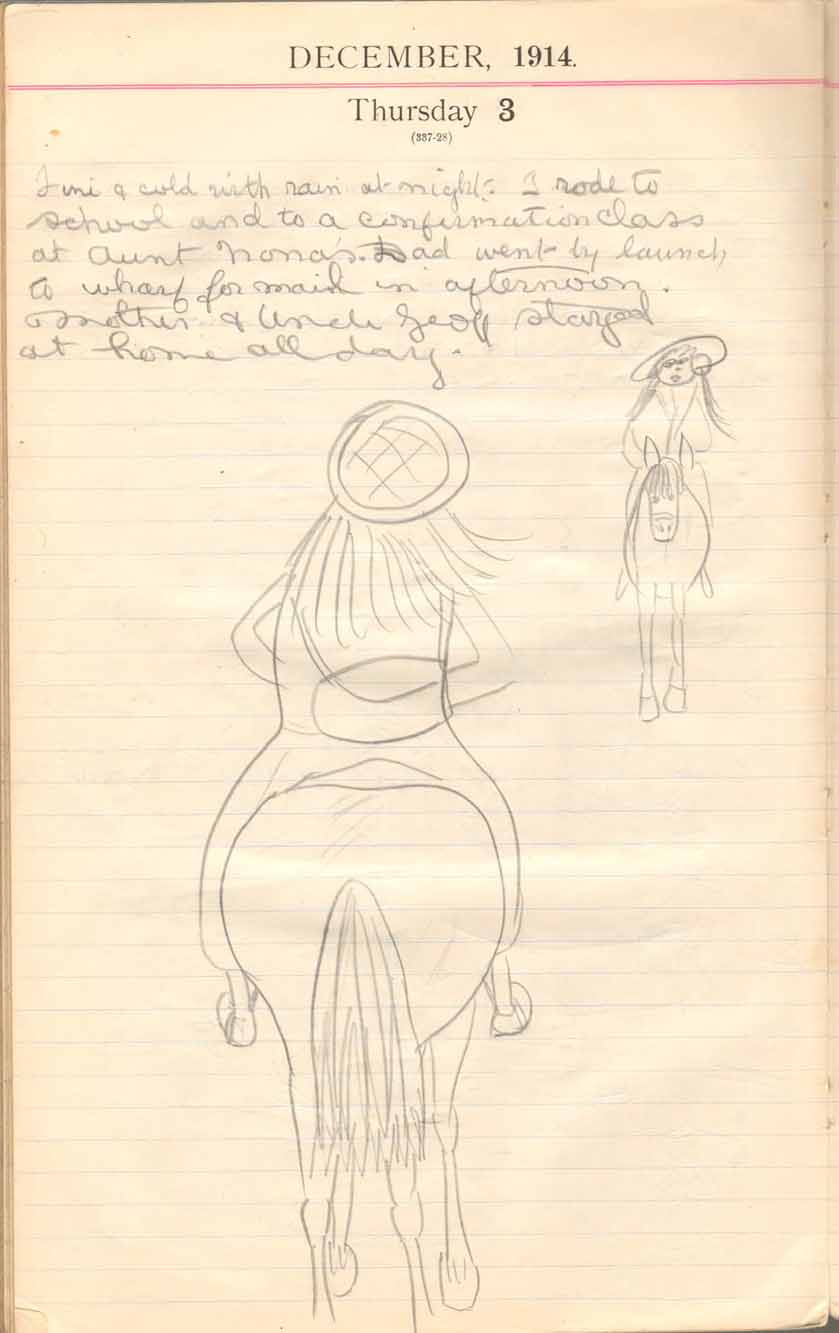 DECEMBER, 1914.
Thursday 3
(337-28)
Fine & cold with rain at night. I rode to
school and to a confirmation class
at Aunt Nona's. Dad went by launch
to wharf for maid in afternoon.
Mother & Uncle Geoff stayed
at home all day.